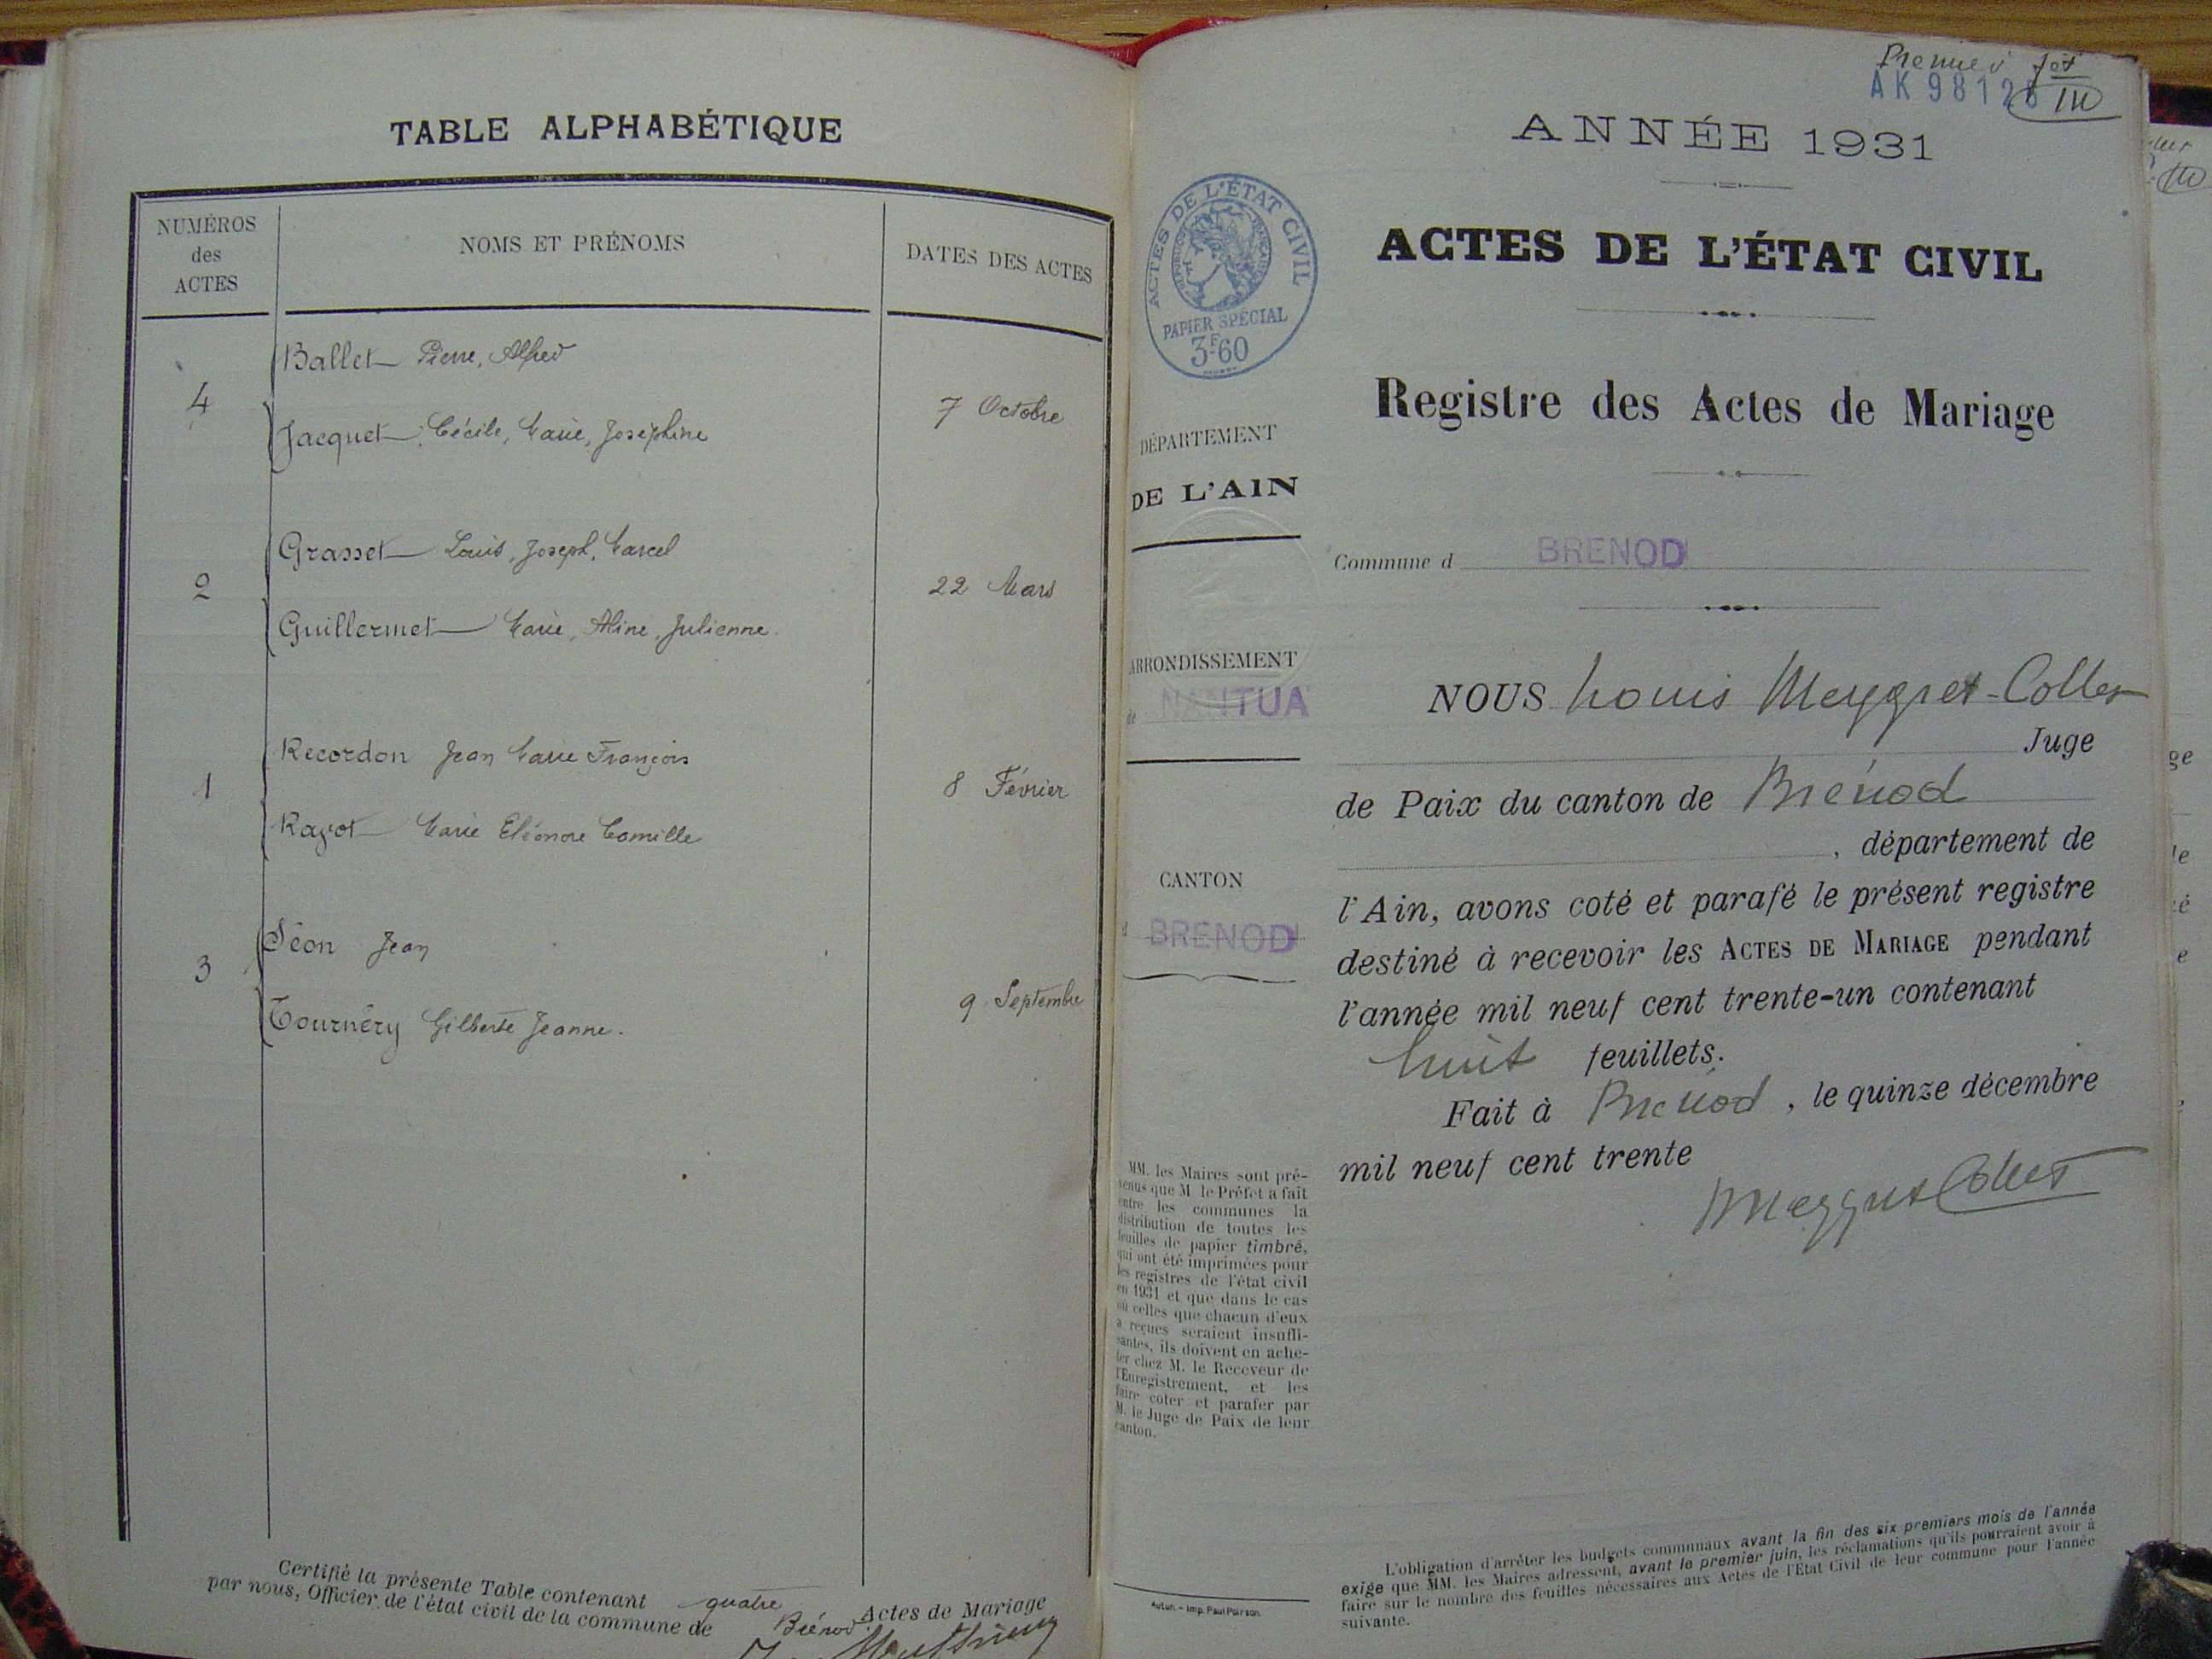 TABLE ALPHABÉTIQUE
NUMÉROS
des
ACTES
NOMS ET PRÉNOMS
DATES DES ACTES
Ballet Pierre, Alfred
4
7 Octobre
Jacquet, Cécile, Marie, Joséphine
Grasset Louis, Joseph, Marcel
2
22 Mars
Guillermet Marie, Aline, Julienne.
Recordon Jean Marie François
1
8 Février
Marie Eléonore Camille
Séon Jean
3
9 Septembre
Tournéry Gilberte Jeanne.
Certifié la présente Table contenant quatre Actes de Mariage
par nous, Officier de l'état civil de la commune de Brénod
Premier
AK 9812
ANNÉE 1931
ACTES DE L'ÉTAT CIVIL
RÉPUBLIQUE FRANÇAISE
PAPIER SPÉCIAL
3F60
ACTES DE L'ÉTAT CIVIL
Registre des Actes de Mariage
DÉPARTEMENT
DE L'AIN
Commune d BRENOD
ARRONDISSEMENT
de NANTUA
CANTON
d BRENOD
NOUS Louis Meygret-Collet
Juge
de Paix du canton de Brénod
, département de
l'Ain, avons coté et parafé le présent registre
destiné à recevoir les ACTES DE MARIAGE pendant
l'année mil neuf cent trente-un contenant
huit feuillets.
Fait à Brénod, le quinze décembre
mil neuf cent trente
MeygretCollet
MM. les Maires sont pré-
venus que M. le Préfet a fait
entre les communes la
distribution de toutes les
feuilles de papier timbré,
qui ont été imprimées pour
les registres de l'état civil
en 1931 et que dans le cas
où celles que chacun d'eux
a reçues seraient insuffi-
santes, ils doivent en ache-
ter chez M. le Receveur de
l'Enregistrement, et les
faire coter et parafer par
M. le Juge de Paix de leur
canton.
Autun. - Imp. Paul Poirson.
L'obligation d'arrêter les budgets communaux avant la fin des six premiers mois de l'année
exige que MM. les Maires adressent, avant le premier juin, les réclamations qu'ils pourraient avoir à
faire sur le nombre des feuilles nécessaires aux Actes de l'Etat Civil de leur commune pour l'année
suivante.